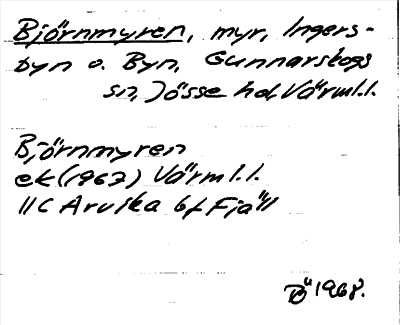 Björnmyren, myr, Ingers-
byn o. Byn, Gunnarskogs
sn, Jösse hd, Värml.l.
Björnmyren
ek (1963) Värml.l.
11C Arvika bf Fjäll
Bü 1968.